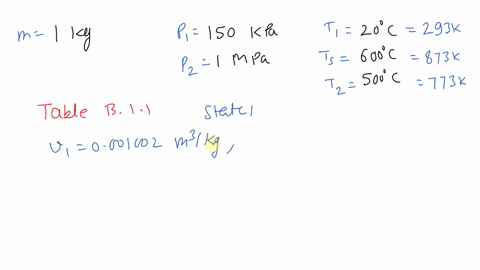 m = 1 kg
P1 = 150 KPa
P2 = 1 MPa
T1 = 20°C = 293K
Ts = 600°C = 873K
T2 = 500°C = 773K
Table B.1.1 State 1
v1 = 0.001002 m³/kg,